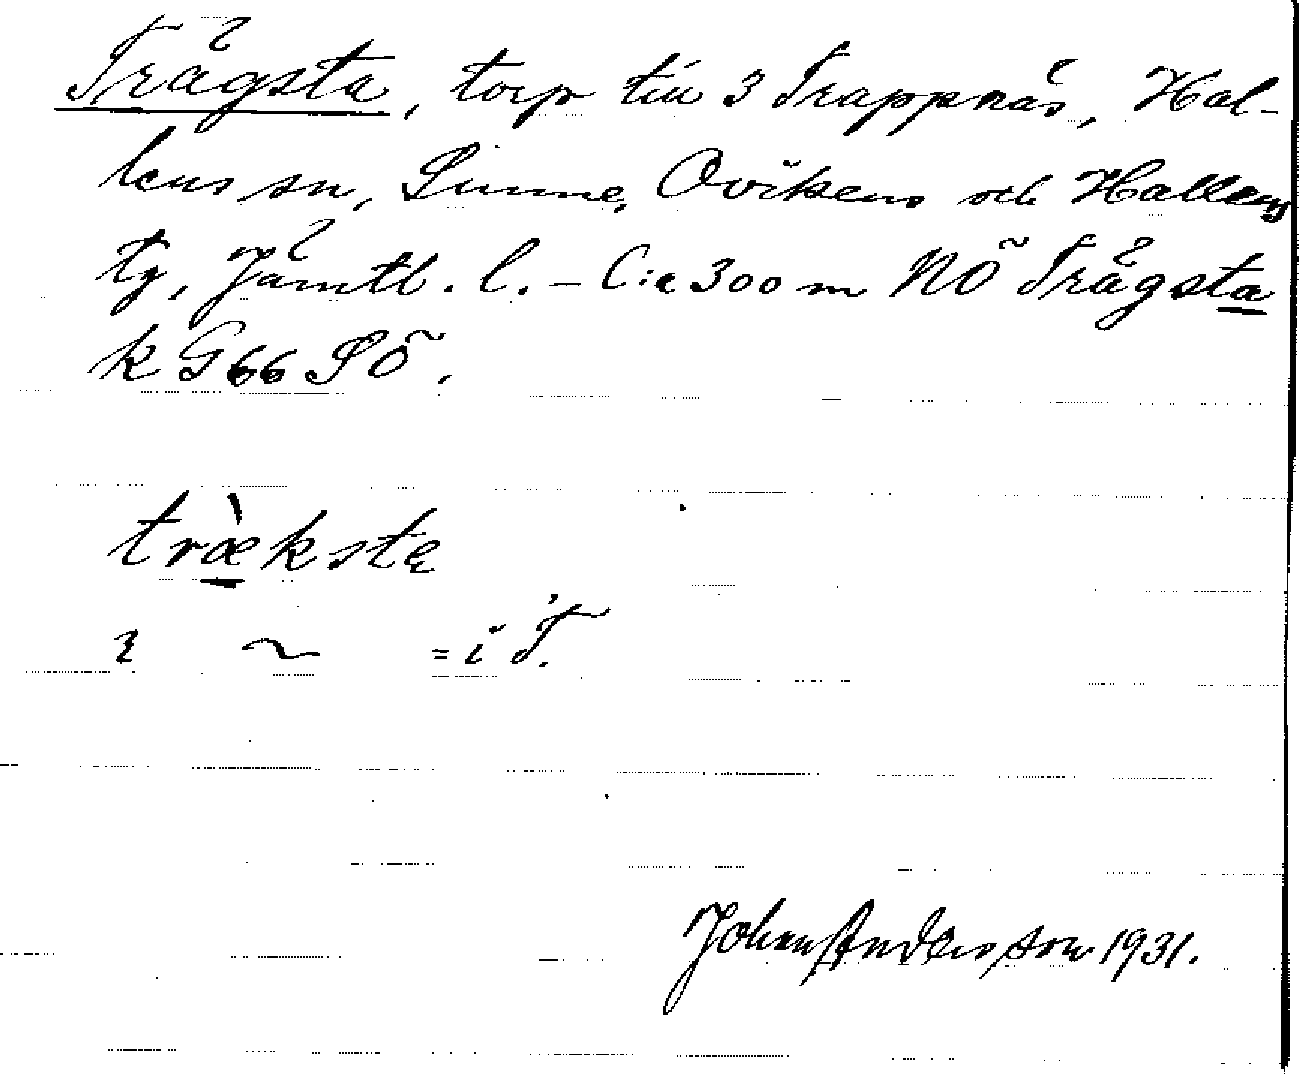 Trägsta, torp till 3 Trappnäs, Hal-
lens sn, Sunne, Ovikens och Hallens
tg, Jämtl. l. – C:a 300 m NÖ Trägsta
k G66 SÖ.
træ̀kstɐ
i ~ = i T.
Johan Andersson 1931.